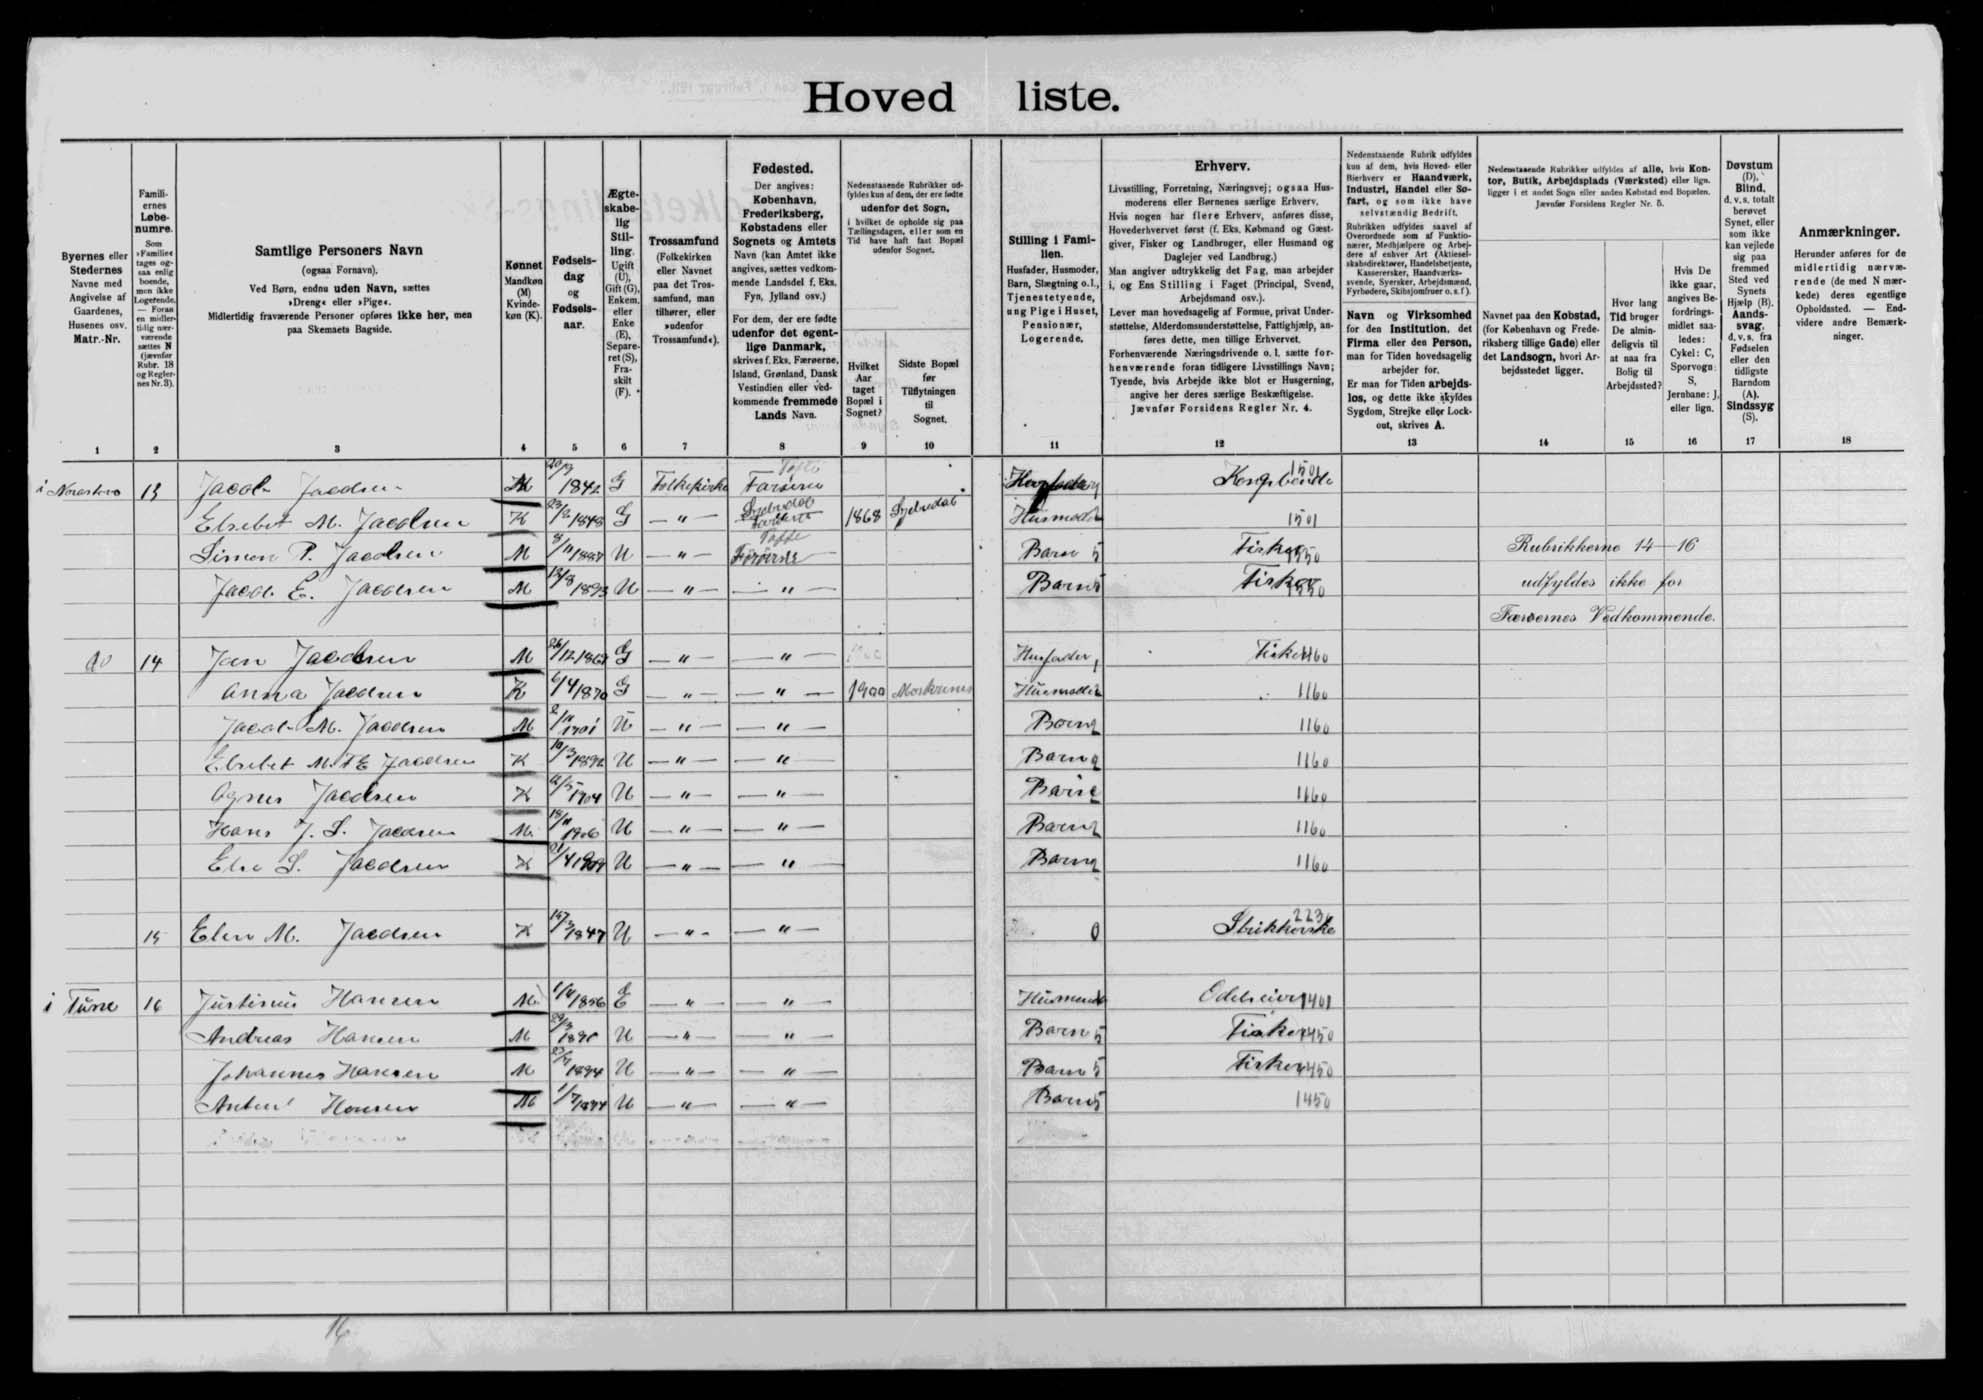 Hoved liste.
Byernes eller
Stedernes
Navne med
Angivelse af
Gaardenes,
Husenes osv.
Matr.-Nr.
Famili-
ernes
Løbe-
numre.
Som
»Familie«
tages og-
saa enlig
boende,
men ikke
Logerende.
— Foran
en midler-
tidig nær-
værende
sættes N
(jævnfør
Rubr. 18
og Regler-
nes Nr. 3).
Samtlige Personers Navn
(ogsaa Fornavn).
Ved Børn, endnu uden Navn, sættes
»Dreng« eller »Pige«.
Midlertidig fraværende Personer opføres ikke her, men
paa Skemaets Bagside.
Kønnet
Mandkøn
(M)
Kvinde-
køn (K).
Fødsels-
dag
og
Fødsels-
aar.
Ægte-
skabe-
lig
Stil-
ling.
Ugift
(U),
Gift (G),
Enkem.
eller
Enke
(E),
Separe-
ret (S),
Fra-
skilt
(F).
Trossamfund
(Folkekirken
eller Navnet
paa det Tros-
samfund, man
tilhører, eller
»udenfor
Trossamfund«).
Fødested.
Der angives:
København,
Frederiksberg,
Købstadens eller
Sognets og Amtets
Navn (kan Amtet ikke
angives, sættes vedkom-
mende Landsdel f. Eks.
Fyn, Jylland osv.)
For dem, der ere fødte
udenfor det egent-
lige Danmark,
skrives f. Eks. Færøerne,
Island, Grønland, Dansk
Vestindien eller ved-
kommende fremmede
Lands Navn.
Nedenstaaende Rubrikker ud-
fyldes kun af dem, der ere fødte
udenfor det Sogn,
i hvilket de opholde sig paa
Tællingsdagen, eller som en
Tid have haft fast Bopæl
udenfor Sognet.
Hvilket
Aar
taget
Bopæl i
Sognet?
Sidste Bopæl
før
Tilflytningen
til
Sognet.
Stilling i Fami-
lien.
Husfader, Husmoder,
Barn, Slægtning o.l.,
Tjenestetyende,
ung Pige i Huset,
Pensionær,
Logerende.
Erhverv.
Livsstilling, Forretning, Næringsvej; ogsaa Hus-
moderens eller Børnenes særlige Erhverv.
Hvis nogen har flere Erhverv, anføres disse,
Hovederhvervet først (f. Eks. Købmand og Gæst-
giver, Fisker og Landbruger, eller Husmand og
Daglejer ved Landbrug.)
Man angiver udtrykkelig det Fag, man arbejder
i, og Ens Stilling i Faget (Principal, Svend,
Arbejdsmand osv.).
Lever man hovedsagelig af Formue, privat Under-
støttelse, Alderdomsunderstøttelse, Fattighjælp, an-
føres dette, men tillige Erhvervet.
Forhenværende Næringsdrivende o. l. sætte for-
henværende foran tidligere Livsstillings Navn;
Tyende, hvis Arbejde ikke blot er Husgerning,
angive her deres særlige Beskæftigelse.
Jævnfør Forsidens Regler Nr. 4.
Nedenstaaende Rubrik udfyldes
kun af dem, hvis Hoved- eller
Bierhverv er Haandværk,
Industri, Handel eller Sø-
fart, og som ikke have
selvstændig Bedrift.
Rubrikken udfyldes saavel af
Overordnede som af Funktio-
nærer, Medhjælpere og Arbej-
dere af enhver Art (Aktiesel-
skabsdirektører, Handelsbetjente,
Kasserersker, Haandværks-
svende, Syersker, Arbejdsmænd,
Fyrbødere, Skibsjomfruer o. s. f.).
Navn og Virksomhed
for den Institution, det
Firma eller den Person,
man for Tiden hovedsagelig
arbejder for.
Er man for Tiden arbejds-
løs, og dette ikke skyldes
Sygdom, Strejke eller Lock-
out, skrives A.
Nedenstaaende Rubrikker udfyldes af alle, hvis Kon-
tor, Butik, Arbejdsplads (Værksted) eller lign.
ligger i et andet Sogn eller anden Købstad end Bopælen.
Jævnfør Forsidens Regler Nr. 5.
Navnet paa den Købstad,
(for København og Frede-
riksberg tillige Gade) eller
det Landsogn, hvori Ar-
bejdsstedet ligger.
Hvor lang
Tid bruger
De almin-
deligvis til
at naa fra
Bolig til
Arbejdssted?
Hvis De
ikke gaar,
angives Be-
fordrings-
midlet saa-
ledes:
Cykel: C,
Sporvogn:
S,
Jernbane: J,
eller lign.
Døvstum
(D),
Blind,
d. v. s. totalt
berøvet
Synet, eller
som ikke
kan vejlede
sig paa
fremmed
Sted ved
Synets
Hjælp (B).
Aands-
svag,
d. v. s. fra
Fødselen
eller den
tidligste
Barndom
(A).
Sindssyg
(S).
Anmærkninger.
Herunder anføres for de
midlertidig nærvæ-
rende (de med N mær-
kede) deres egentlige
Opholdssted. — End-
videre andre Bemærk-
ninger.
1 2 3 4 5 6 7 8 9 10 11 12 13 14 15 16 17 18
13 Jacob Jacobsen M 1842 G Folkekirke 1501
Elsebet M. Jacobsen K 1848 G — " — 1868 Husmoder 1501
Simon P. Jacobsen M U — " — Barn 5 Fisker 1550 Rubrikkerne 14—16
Jacob E. Jacobsen M 1893 U — " — — " — Barn 5 Fisker 1550 udfyldes ikke for
Færøernes Vedkommende.
do 14 Jacobsen M G — " — — " — Husfader Fisker 1160
Anna Jacobsen K 6/4 1870 G — " — — " — 1900 Husmoder 1160
Jacob M. Jacobsen M 1901 U — " — — " — Barn 1160
Elsebet Jacobsen K U — " — — " — Barn 1160
Agnes Jacobsen K 1904 U — " — — " — Barn 1160
Hans J. S. Jacobsen M 1906 U — " — — " — Barn 1160
Else S. Jacobsen K U — " — — " — Barn 1160
15 Elen M. Jacobsen K 1847 U — " — — " — 0 223
i 16 Justinus Hansen M 1856 E — " — — " — 1401
Andreas Hansen M U — " — — " — Barn 5 Fisker 1450
Johannes Hansen M 1894 U — " — — " — Barn 5 Fisker 1450
Hansen M U — " — — " — Barn 5 1450
16